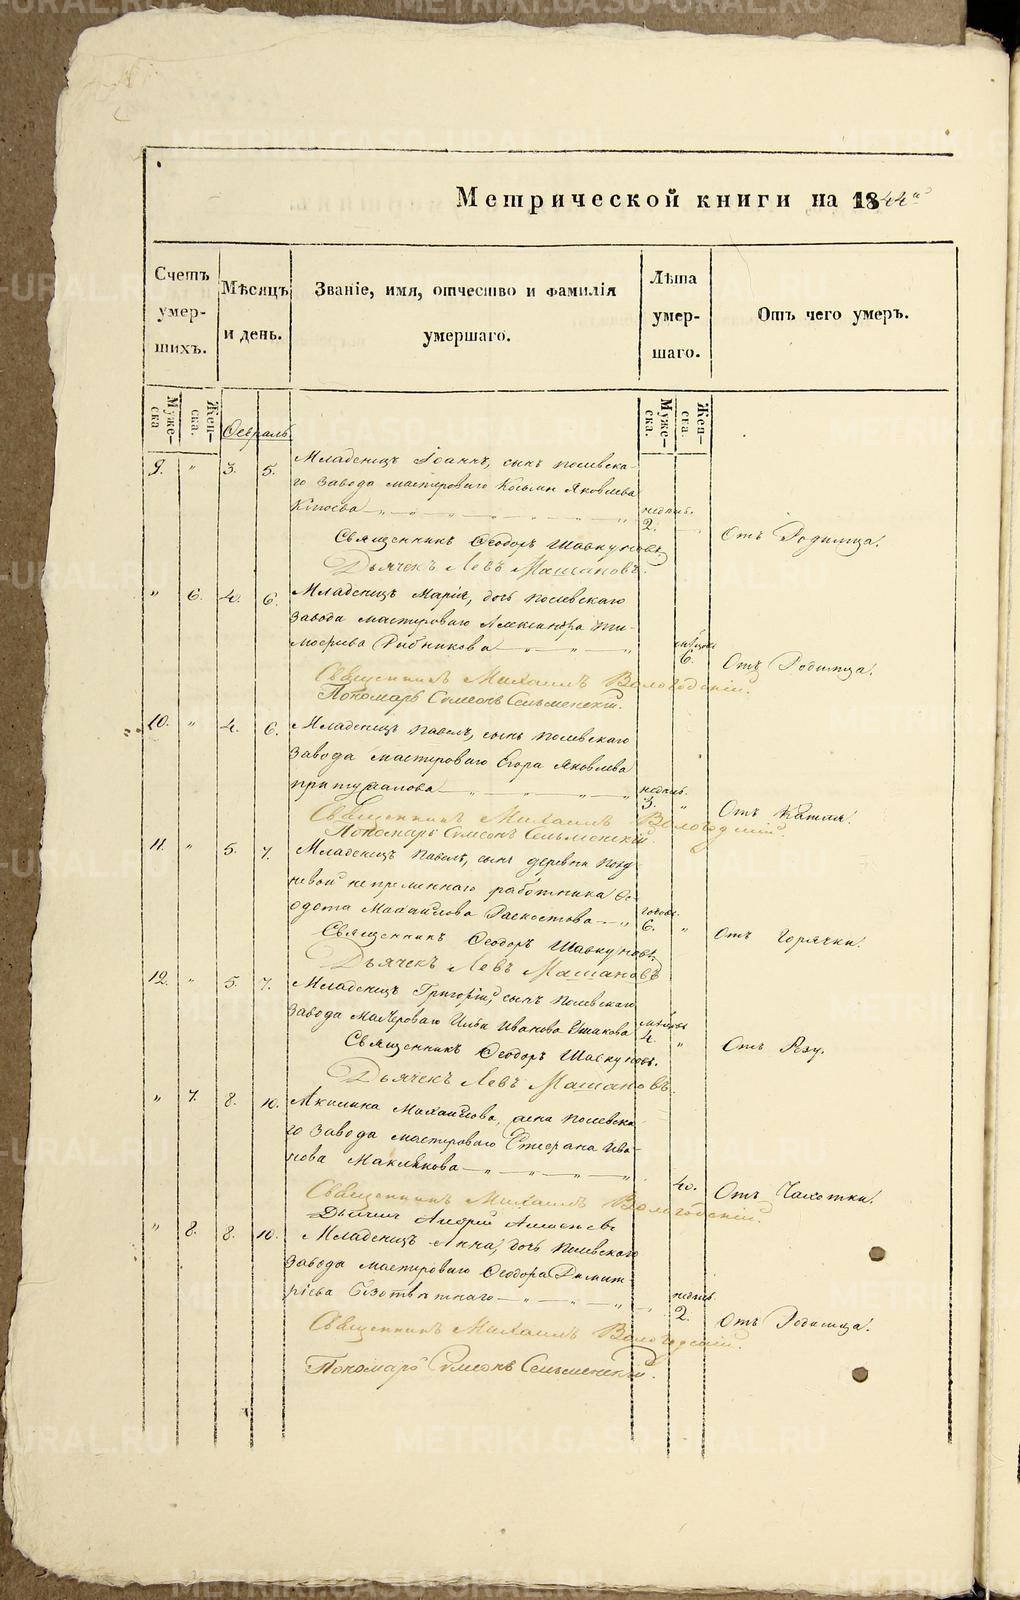 Метрической книги на 1844й
Счетъ умер- шихъ.
Мѣсяцъ и день.
Званіе, имя, отчество и фамилія умершаго.
Лѣта умер- шаго.
Отъ чего умеръ.
Муже- ска
Жен- ска.
Февраль.
Муже- ска.
Жен- ска.
9. " 3. 5. Младенецъ Іоаннъ, сынъ Полевска-
го завода мастероваго Козьмы Яковлева
недѣль.
2. Отъ Родимца.
Священникъ Ѳеодоръ Шавкуновъ
Дьячекъ Левъ Машановъ.
" 6. 4. 6. Младенецъ Марія, дочь Полевскаго
завода мастероваго Александра Ти-
мофеева
6. Отъ Родимца.
Священникъ Михаилъ Вологодскій.
Пономарь Симеонъ Сельменскій.
10. " 4. 6. Младенецъ Павелъ, сынъ Полевскаго
завода мастероваго Егора Яковлева
недѣль.
3. " Отъ Кашля.
Священникъ Михаилъ Вологодскій.
Пономарь Симеонъ Сельменскій.
11. " 5. 7. Младенецъ Павелъ, сынъ деревни Полд
невой непремѣннаго работника Ѳе-
дота Михайлова
6. " Отъ Горячки.
Священникъ Ѳеодоръ Шавкуновъ.
Дьячекъ Левъ Машановъ
12. " 5. 7. Младенецъ Григорій, сынъ Полевскаго
завода Ильи Иванова Ушакова
4. " Отъ
Священникъ Ѳеодоръ Шавкуновъ.
Дьячекъ Левъ Машановъ.
" 7. 8. 10. Акилина Михайлова, жена Полевска-
го завода мастероваго Стефана Ива-
нова
40. Отъ Чахотки.
Священникъ Михаилъ Вологодскій.
Андрей
" 8. 8. 10. Младенецъ Анна, дочь Полевскаго
завода мастероваго Ѳеодора Димит-
ріева
недѣль
2. Отъ Родимца.
Священникъ Михаилъ Вологодскій.
Пономарь Симеонъ Сельменскій.
METRIKI.GASO-URAL.RU